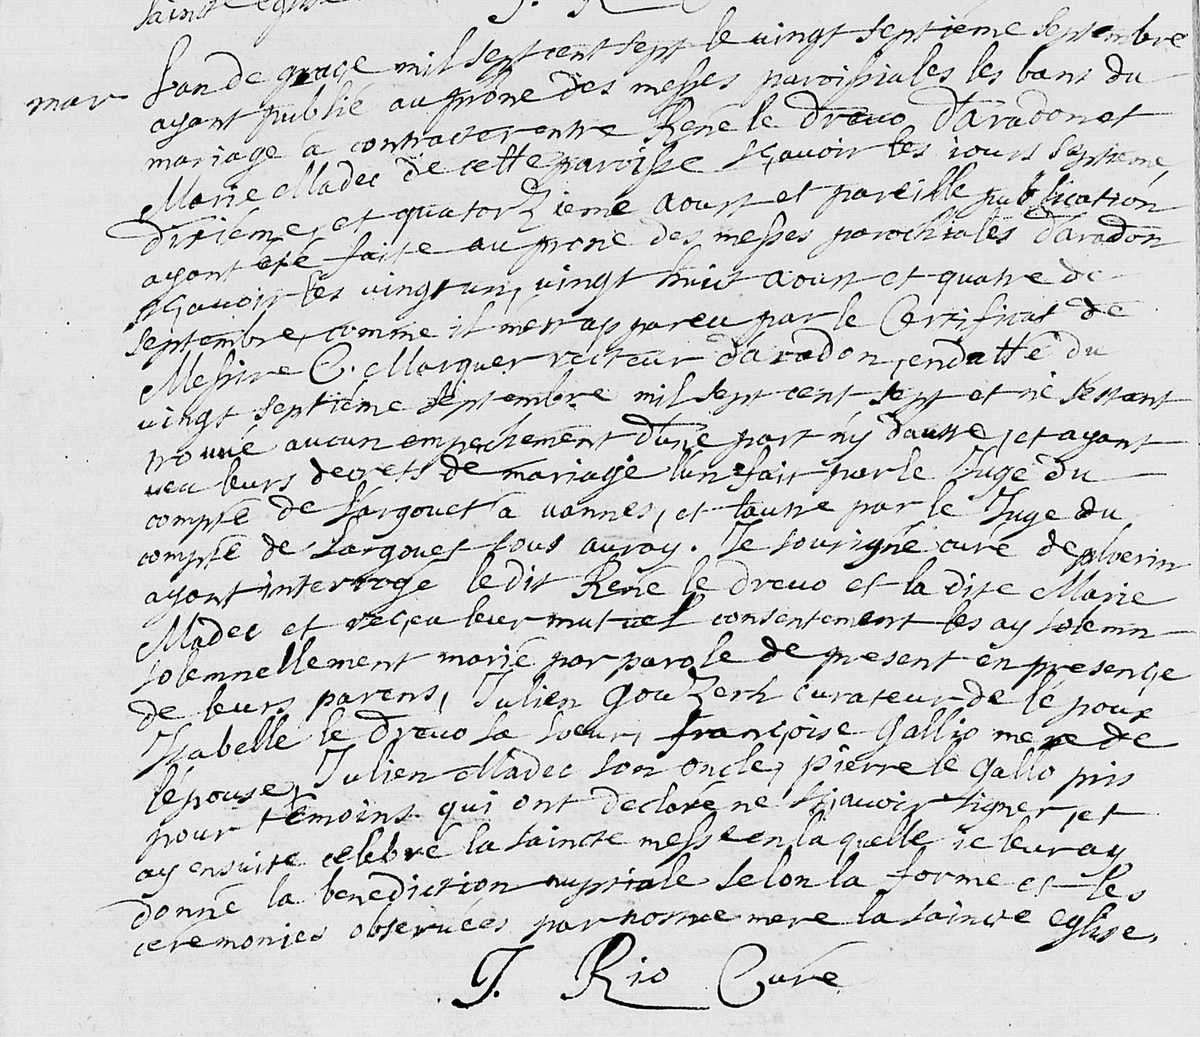 saincte eglise
J. R
mar
Lan de grace mil sept cent sept le vingt septieme septembre
ayant publié au prône des messes paroissiales les bans du
mariage a contracter entre René le Drevo d'aradon et
Marie Madec de cette paroisse sçavoir les jours septieme,
dixiéme, et quatorzieme aoust et pareille publication
ayant eté faite au prone des messes parochiales d'aradon
sçavoir les vingt un, vingt huit aoust et quatre de
septembre, comme il m'est appareu par le Certificat de
Messire C. Marquer recteur d'aradon, en datté du
vingt septiéme septembre mil sept cent sept et ne sestant
trouvé aucun empechement d'une part ny d'autre, et ayant
veu leurs decrets de mariage lun fait par le Juge du
compté de Largouet a vannes, et lautre par le Juge du
compté de Largouet sous auray. Je sousigné curé de ploerin
ayant interrogé ledit René le Drevo et la dite Marie
Madec et reçeu leur mutuel consentement les ay solemn
solemnellement marié par parole de present en presençe
de leurs parens, Julien Gouzerh curateur de le poux
Isabelle le Drevo sa soeur, françoise Gallio mere de
lépouse, Julien Madec son oncle, pierre le Gallo pris
pour témoins qui ont declaré ne sçavoir signer, et
ay ensuite celebré la saincte messe en laquelle ie leur ay
donné la benediction nuptiale selon la forme et les
ceremonies observées par nostre mere la saincte eglise.
J. Rio Curé